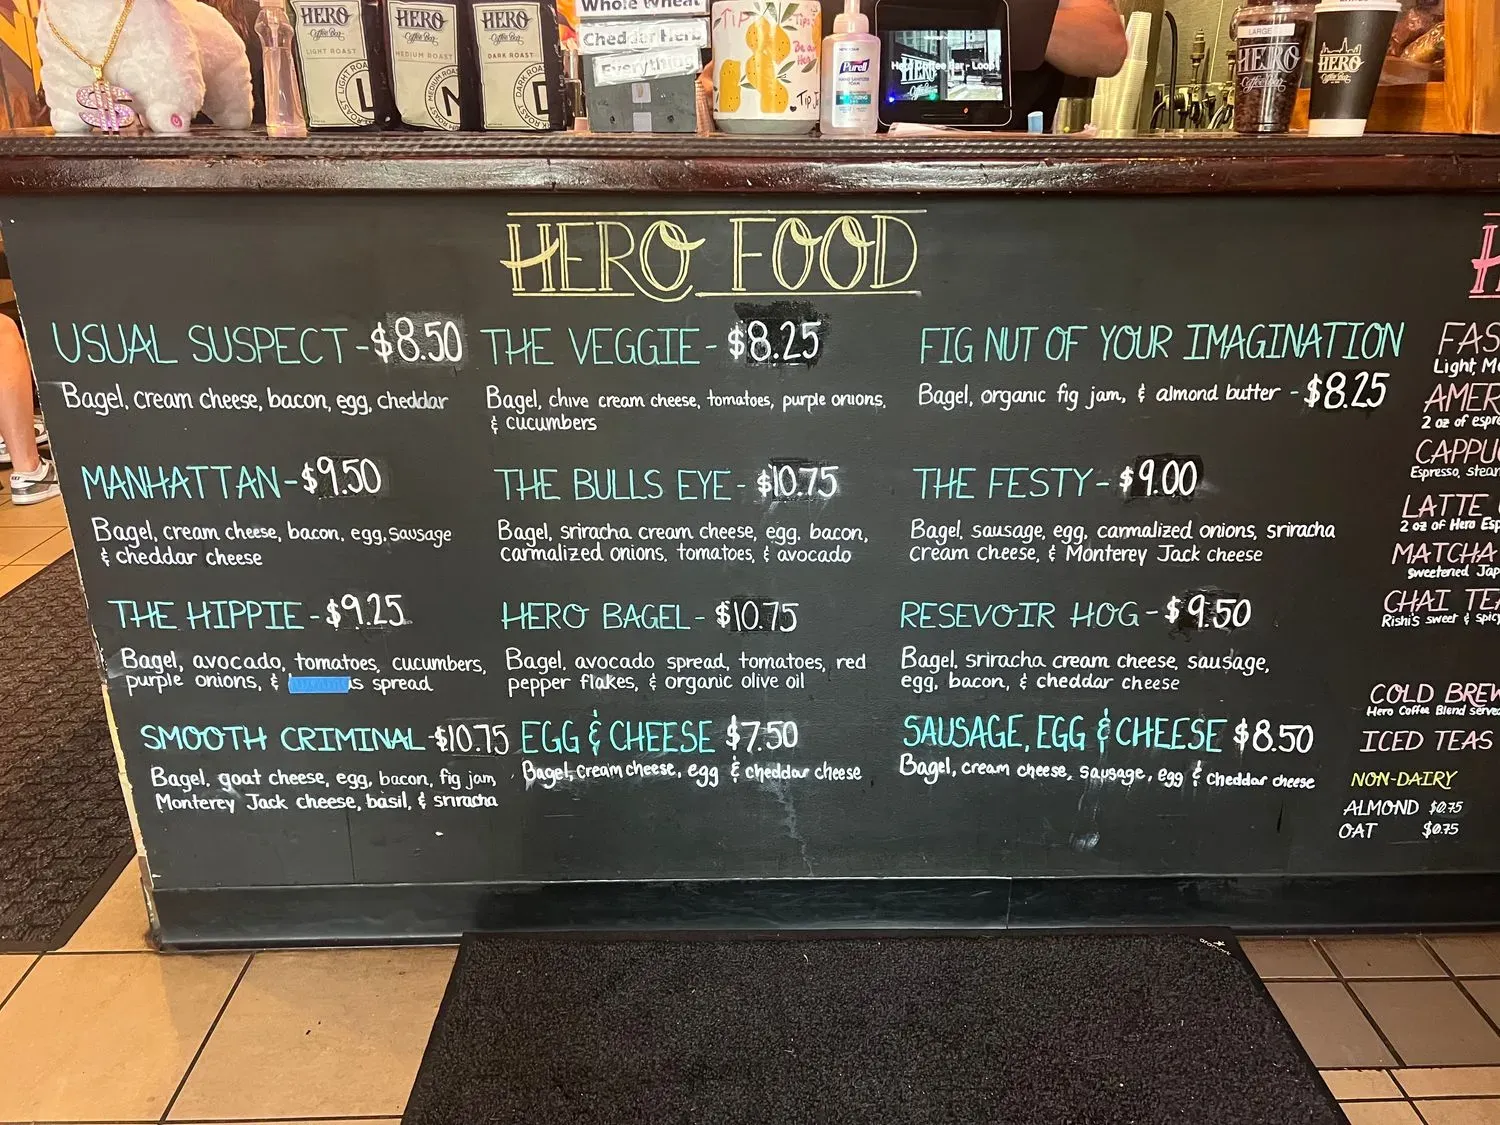 HERO
Coffee Bar
LIGHT ROAST
HERO
Coffee Bar
MEDIUM ROAST
HERO
Coffee Bar
DARK ROAST
Whole Wheat
Cheddar Herb
Everything
TIP
Purell
Hero Coffee Bar - Loop
LARGE
HERO
HERO
Coffee Bar
HERO FOOD
USUAL SUSPECT - $8.50
Bagel, cream cheese, bacon, egg, cheddar
MANHATTAN - $9.50
Bagel, cream cheese, bacon, egg, sausage
& cheddar cheese
THE HIPPIE - $9.25
Bagel, avocado, tomatoes, cucumbers,
purple onions, & spread
SMOOTH CRIMINAL - $10.75
Bagel, goat cheese, egg, bacon, fig jam,
Monterey Jack cheese, basil, & sriracha
THE VEGGIE - $8.25
Bagel, chive cream cheese, tomatoes, purple onions,
& cucumbers
THE BULLS EYE - $10.75
Bagel, sriracha cream cheese, egg, bacon,
carmalized onions, tomatoes, & avocado
HERO BAGEL - $10.75
Bagel, avocado spread, tomatoes, red
pepper flakes, & organic olive oil
EGG & CHEESE $7.50
Bagel, cream cheese, egg & cheddar cheese
FIG NUT OF YOUR IMAGINATION
Bagel, organic fig jam, & almond butter - $8.25
THE FESTY - $9.00
Bagel, sausage, egg, carmalized onions, sriracha
cream cheese, & Monterey Jack cheese
RESEVOIR HOG - $9.50
Bagel, sriracha cream cheese, sausage,
egg, bacon, & cheddar cheese
SAUSAGE, EGG & CHEESE $8.50
Bagel, cream cheese, sausage, egg & cheddar cheese
Light,
2 oz of
Espresso,
LATTE
2 oz of Hero
MATCHA
Sweetened
CHAI
Rishi's sweet &
COLD BREW
Hero Coffee Blend
ICED TEAS
NON-DAIRY
ALMOND $0.75
OAT $0.75